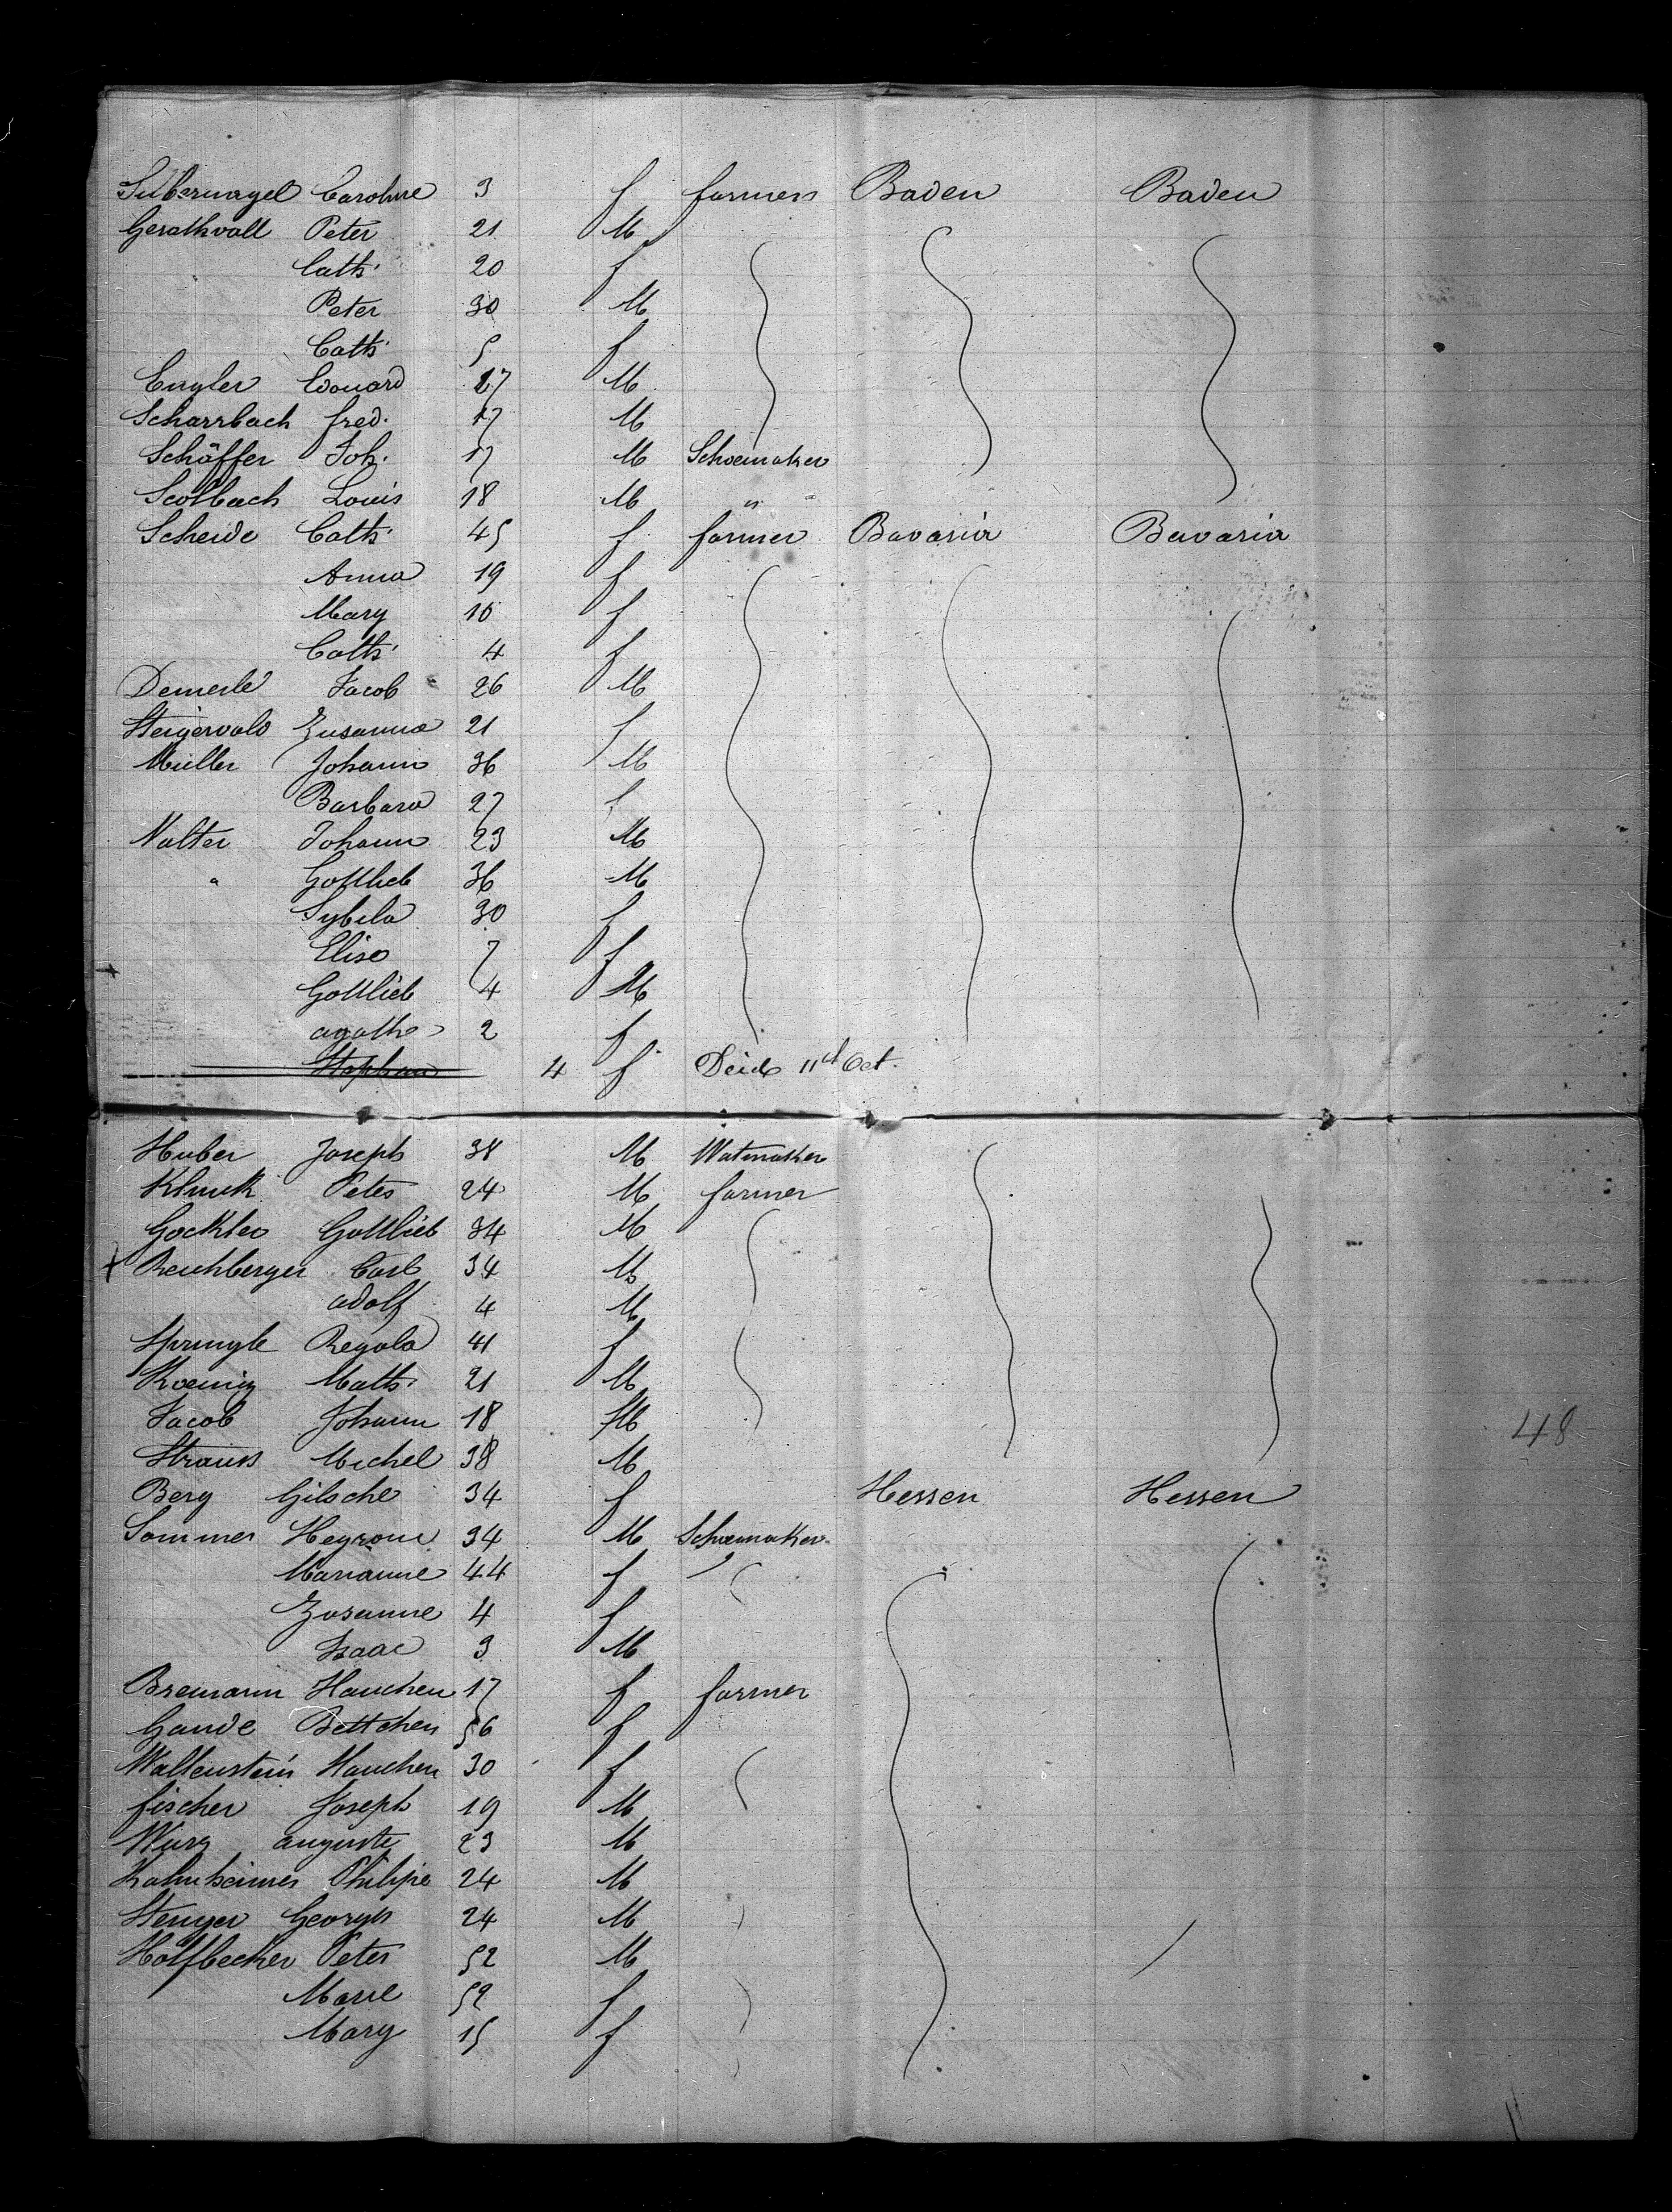 Silbernagel Caroline 3 f farmers Baden Baden
Gerathvoll Peter 21 M
Cath' 20 f
Peter 30 M
Cath' 5 f
Engler Edouard 27 M
Scharrbach fred. 17 M
Schäffer Joh. 17 M Schoemaker
Scolbach Louis 18 M "
Scheide Cath' 45 f farmer Bavaria Bavaria
Anna 19 f
Mary 10 f
Cath' 4 f
Demerle Jacob 26 M
Steigervald Zusanna 21 f
Müller Johann 36 M
Barbara 27 f
Nalter Johann 23 M
" Gottlieb 36 M
Sybila 30 f
Elise 7 f
Gottlieb 4 M
agathe 2 f
Stephan 4 f Deid 11d Oct.
Huber Joseph 38 M Watmaker
Klunk Peter 24 M farmer
Gockler Gottlieb 34 M
Reichberger Carl 34 M
adolf 4 M
Springle Regola 41 f
Koenig Math. 21 M
Jacob Johann 18 M
Strauss Michel 38 M
Berg Gilsche 34 f Hessen Hessen
Sommer Heyroum 34 M Schoemaker
Marianne 44 f
Zusanne 4 f
Isaac 3 M
Bremann Hanchen 17 f farmer
Gande Bettchen 56 f
Wallenstein Hanchen 30 f
fischer Joseph 19 M
Wurz auguste 23 M
Kahnheimer Philipe 24 M
Stenger Georges 24 M
Holfbecker Peter 52 M
Marie 52 f
Mary 15 f
48